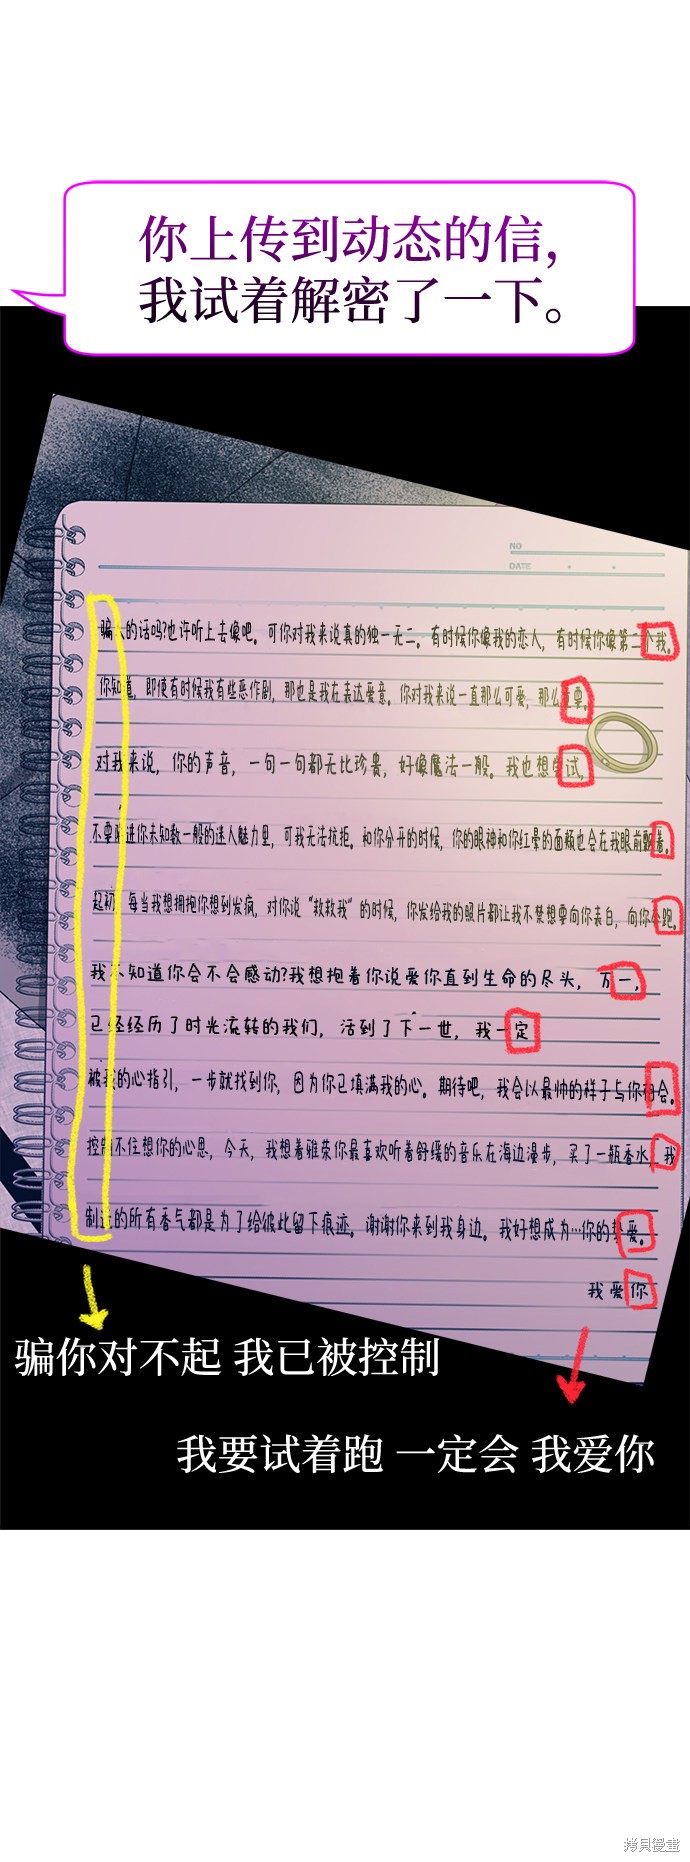 你上传到动态的信,
我试着解密了一下。
NO
DATE
骗人的话吗?也许听上去像吧。可你对我来说真的独一无二。有时候你像我的恋人，有时候你像第二个我。
你知道，即使有时候我有些恶作剧，那也是我在表达爱意。你对我来说一直那么可爱，那么重要。
对我来说，你的声音，一句一句都无比珍贵，好像魔法一般。我也想尝试，
不要陷进你未知数一般的迷人魅力里，可我无法抗拒。和你分开的时候，你的眼神和你红晕的面颊也会在我眼前飘着。
起初，每当我想拥抱你想到发疯，对你说“救救我”的时候，你发给我的照片都让我不禁想要向你表白，向你奔跑。
我不知道你会不会感动?我想抱着你说爱你直到生命的尽头，万一，
已经经历了时光流转的我们，活到了下一世，我一定
被我的心指引，一步就找到你，因为你已填满我的心。期待吧，我会以最帅的样子与你相会。
控制不住想你的心思，今天，我想着雅荣你最喜欢听着舒缓的音乐在海边漫步，买了一瓶香水，我
制造的所有香气都是为了给彼此留下痕迹。谢谢你来到我身边。我好想成为…你的挚爱。
我爱你
骗你对不起 我已被控制
我要试着跑 一定会 我爱你
拷貝漫畫